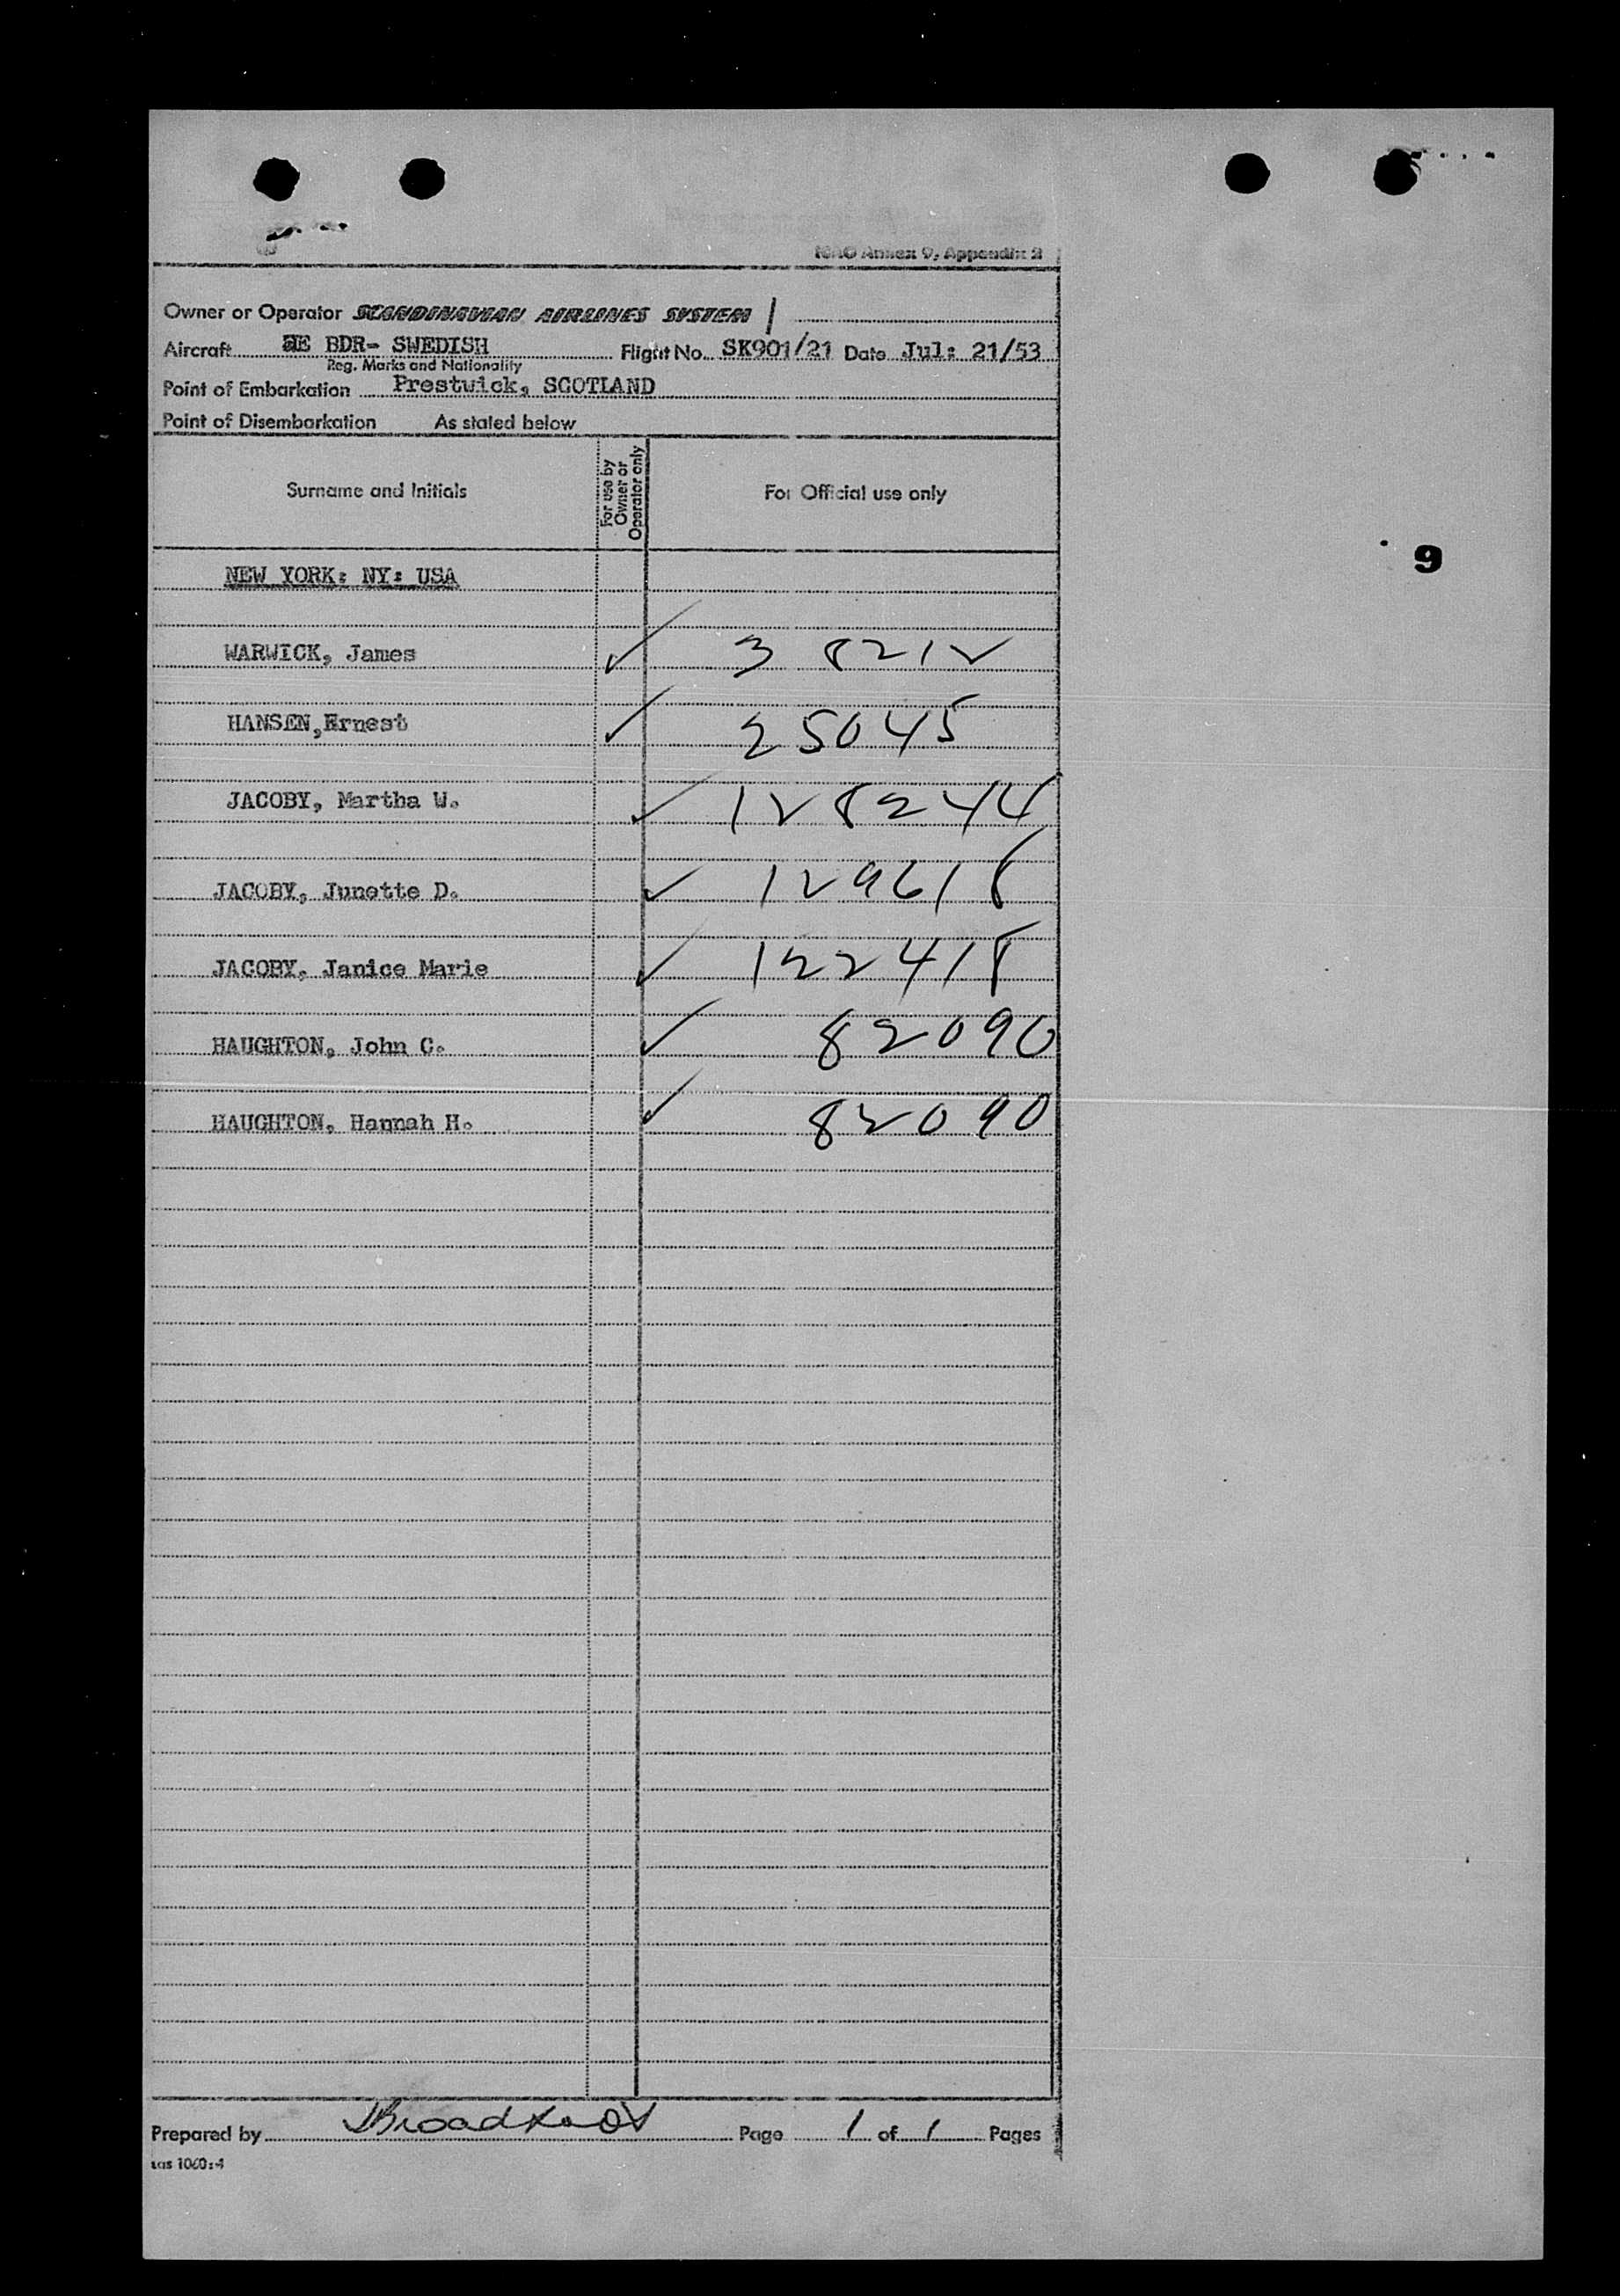 ICAO Annex 9, Appendix 2
Owner or Operator SCANDINAVIAN AIRLINES SYSTEM
Aircraft SE BDR- SWEDISH Flight No. SK901/21 Date Jul: 21/53
Reg. Marks and Nationality
Point of Embarkation Prestwick, SCOTLAND
Point of Disembarkation As stated below
Surname and Initials For use by Owner or Operator only For Official use only
9
NEW YORK: NY: USA
WARWICK, James ✓ 3 8212
HANSEN,Ernest ✓ 25045
JACOBY, Martha W. ✓ 128244
JACOBY, Junette D. ✓ 129618
JACOBY, Janice Marie ✓ 122418
HAUGHTON, John C. ✓ 82090
HAUGHTON, Hannah H. ✓ 82090
Prepared by Page 1 of 1 Pages
sas 1060:4